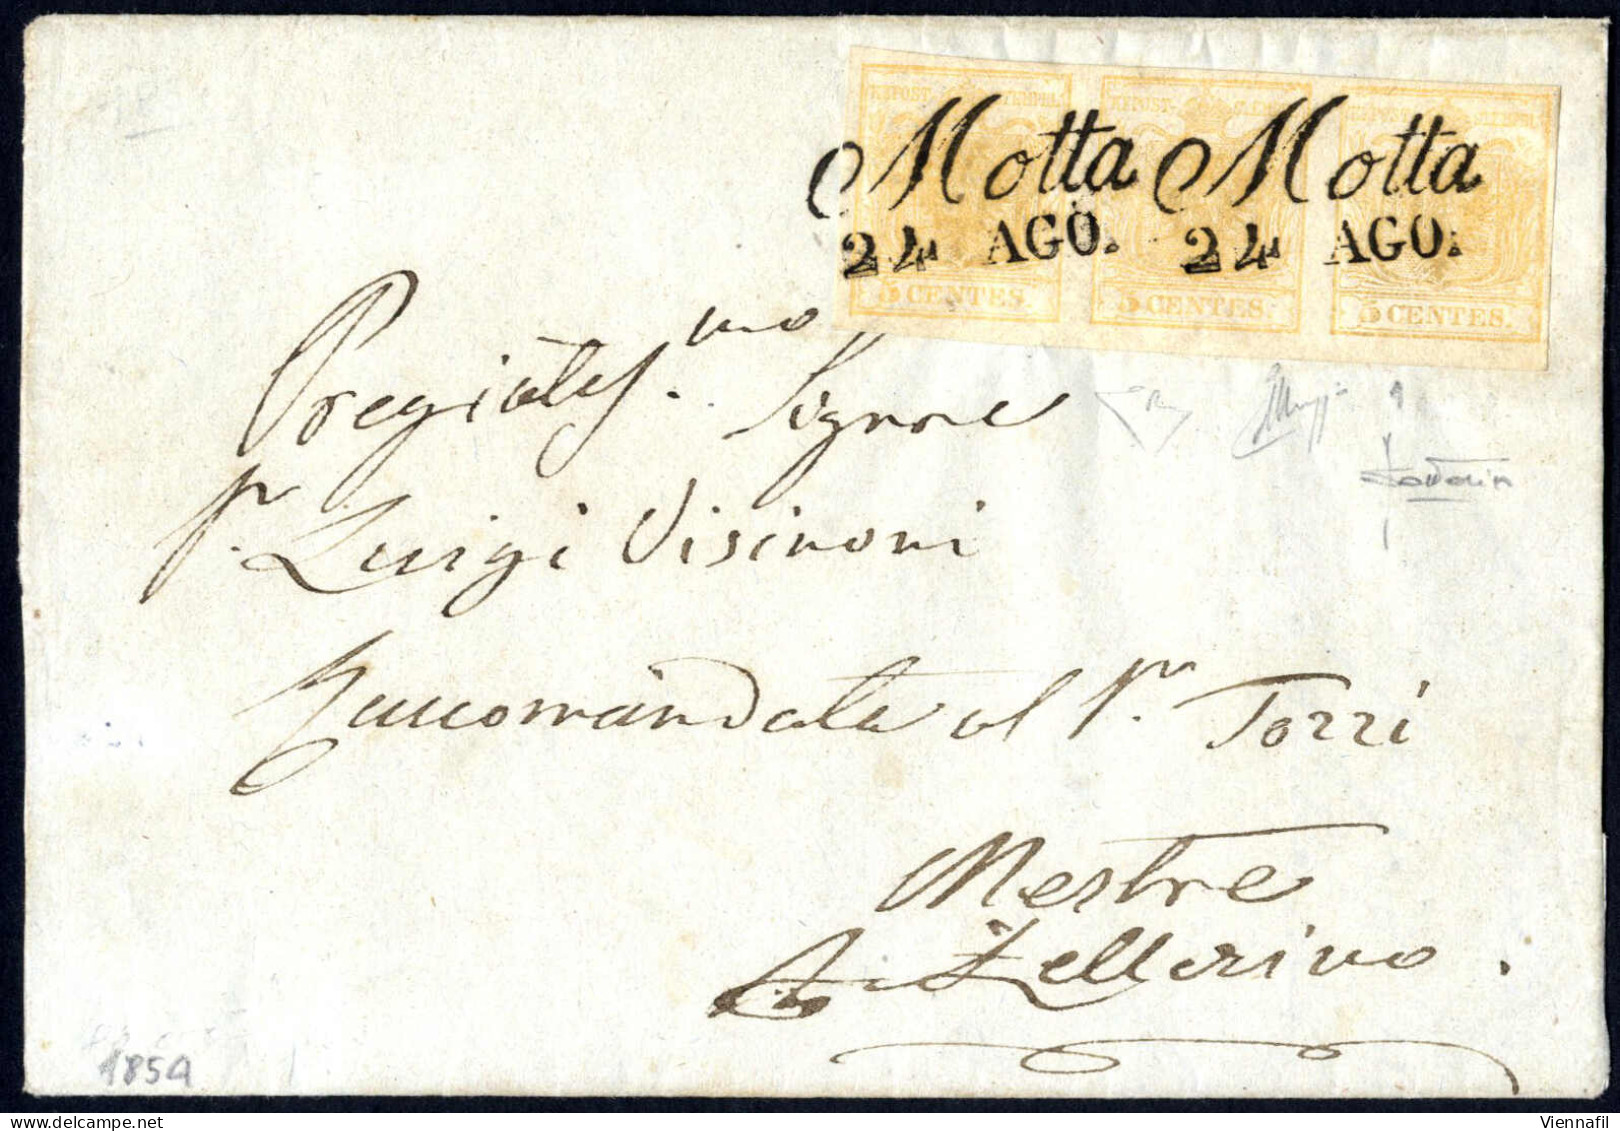 KKPOST-STEMPEL KKPOST-STEMPEL KKPOST-STEMPEL
Motta Motta
24 AGO. 24 AGO.
5 CENTES. 5 CENTES. 5 CENTES.
Pregiatis.mo Signore
Sr. Luigi Visinoni
Raccomandata al Sr. Torri
Mestre
Zellerino.
1854
Viennafil